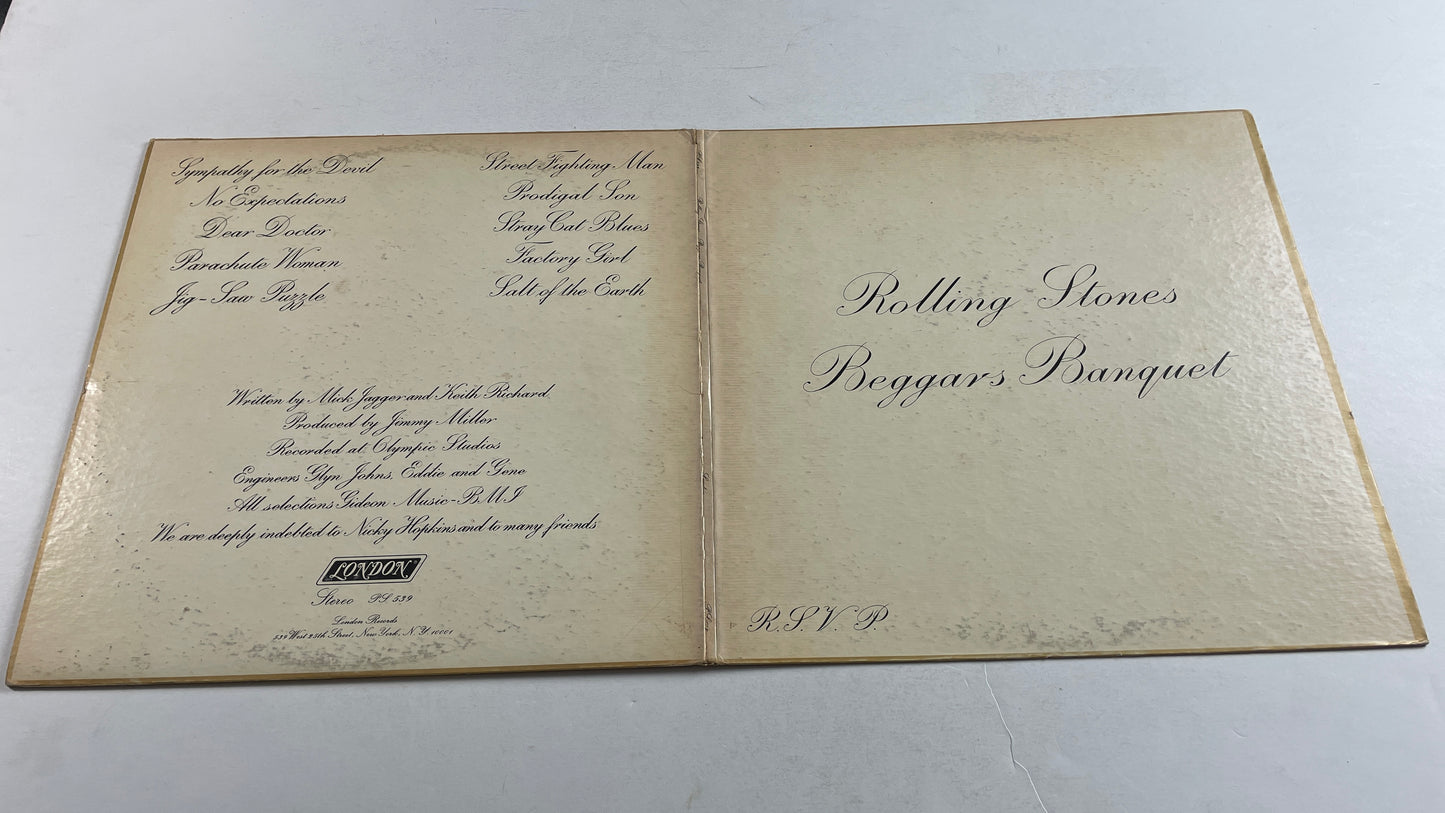 Sympathy for the Devil
No Expectations
Dear Doctor
Parachute Woman
Jig-Saw Puzzle
Street Fighting Man
Prodigal Son
Stray Cat Blues
Factory Girl
Salt of the Earth
Written by Mick Jagger and Keith Richard
Produced by Jimmy Miller
Recorded at Olympic Studios
Engineers Glyn Johns, Eddie and Gene
All selections Gideon Music-BMI
We are deeply indebted to Nicky Hopkins and to many friends
LONDON
Stereo PS 539
London Records
539 West 25th Street, New York, N.Y. 10001
Rolling Stones
Beggars Banquet
R.S.V.P.